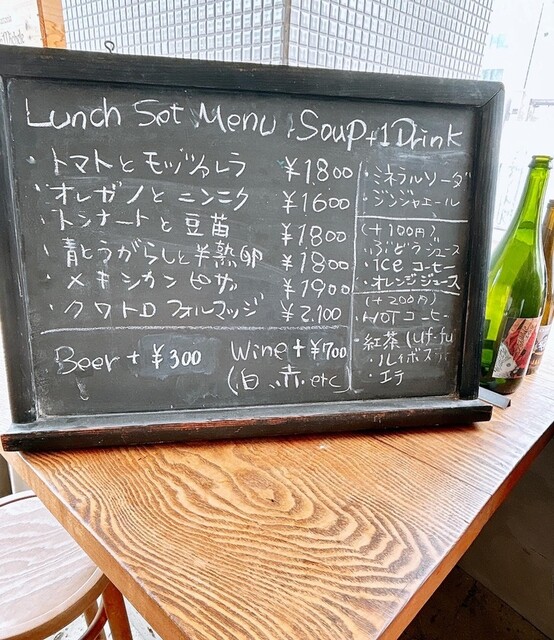 Lunch Set Menu, Soup+1Drink
・トマトとモッツァレラ ¥1.800
・オレガノとニンニク ¥1600
・トンナートと豆苗 ¥1800
・青とうがらしと半熟卵 ¥1800
・メキシカンピザ ¥1900
・クワトロフォルマッジ ¥2,100
Beer + ¥300
Wine + ¥700
(白、赤.etc)
・ミネラルソーダ
・ジンジャエール
(+100円)
・ぶどうジュース
・ICeコーヒー
・オレンジジュース
(+200円)
・HOTコーヒー
紅茶(uf-fu
・ルイボスティ